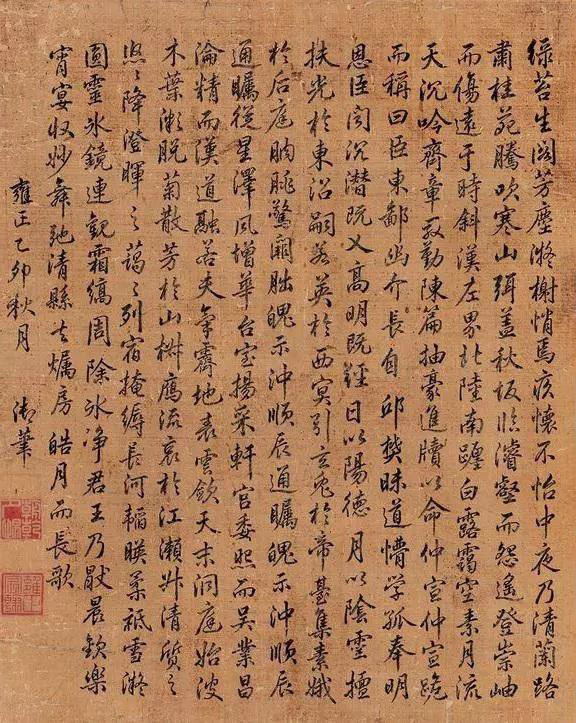 綠苔生閣芳塵凝榭悄焉疚懷不怡中夜乃清蘭路
肅桂苑騰吹寒山弭蓋秋坂臨濬壑而怨遙登崇岫
而傷遠于時斜漢左界北陸南躔白露靄空素月流
天沉吟齊章殷勤陳篇抽豪進牘以命仲宣仲宣跪
而稱曰臣東鄙幽介長自邱樊昧道懵學孤奉明
恩臣聞沉潛既乂高明既經日以陽德月以陰靈擅
扶光於東沼嗣若英於西冥引玄兔於帝臺集素娥
於后庭朒朓驚闕朏魄示沖順辰通矚魄示沖順辰
通矚從星澤風增華台室揚采軒宮委照而吳業昌
淪精而漢道融若夫氣霽地表雲斂天末洞庭始波
木葉漸脫菊散芳於山樹鴈流哀於江瀨升清質之
悠々降澄暉之藹々列宿掩縟長河韜映柔祇雪凝
圓靈冰鏡連觀霜縞周除冰淨君王乃厭晨歡樂
宵宴收妙舞弛清縣去燭房皓月而長歌
雍正乙卯秋月 御筆